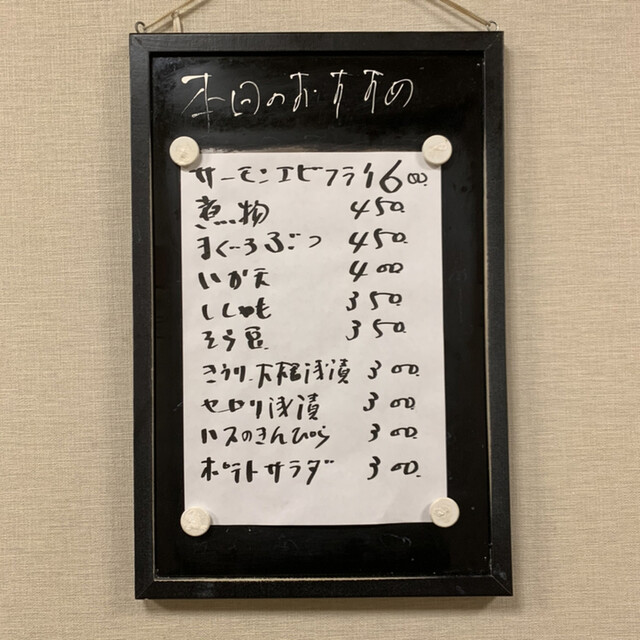 本日のおすすめ
サーモンエビフライ 600.
煮物 450.
まぐろぶつ 450.
いか天 400
ししゃも 350.
そら豆. 350.
きうり.大根浅漬 300.
セロリ浅漬 300.
ハスのきんぴら 300.
ポテトサラダ 300.